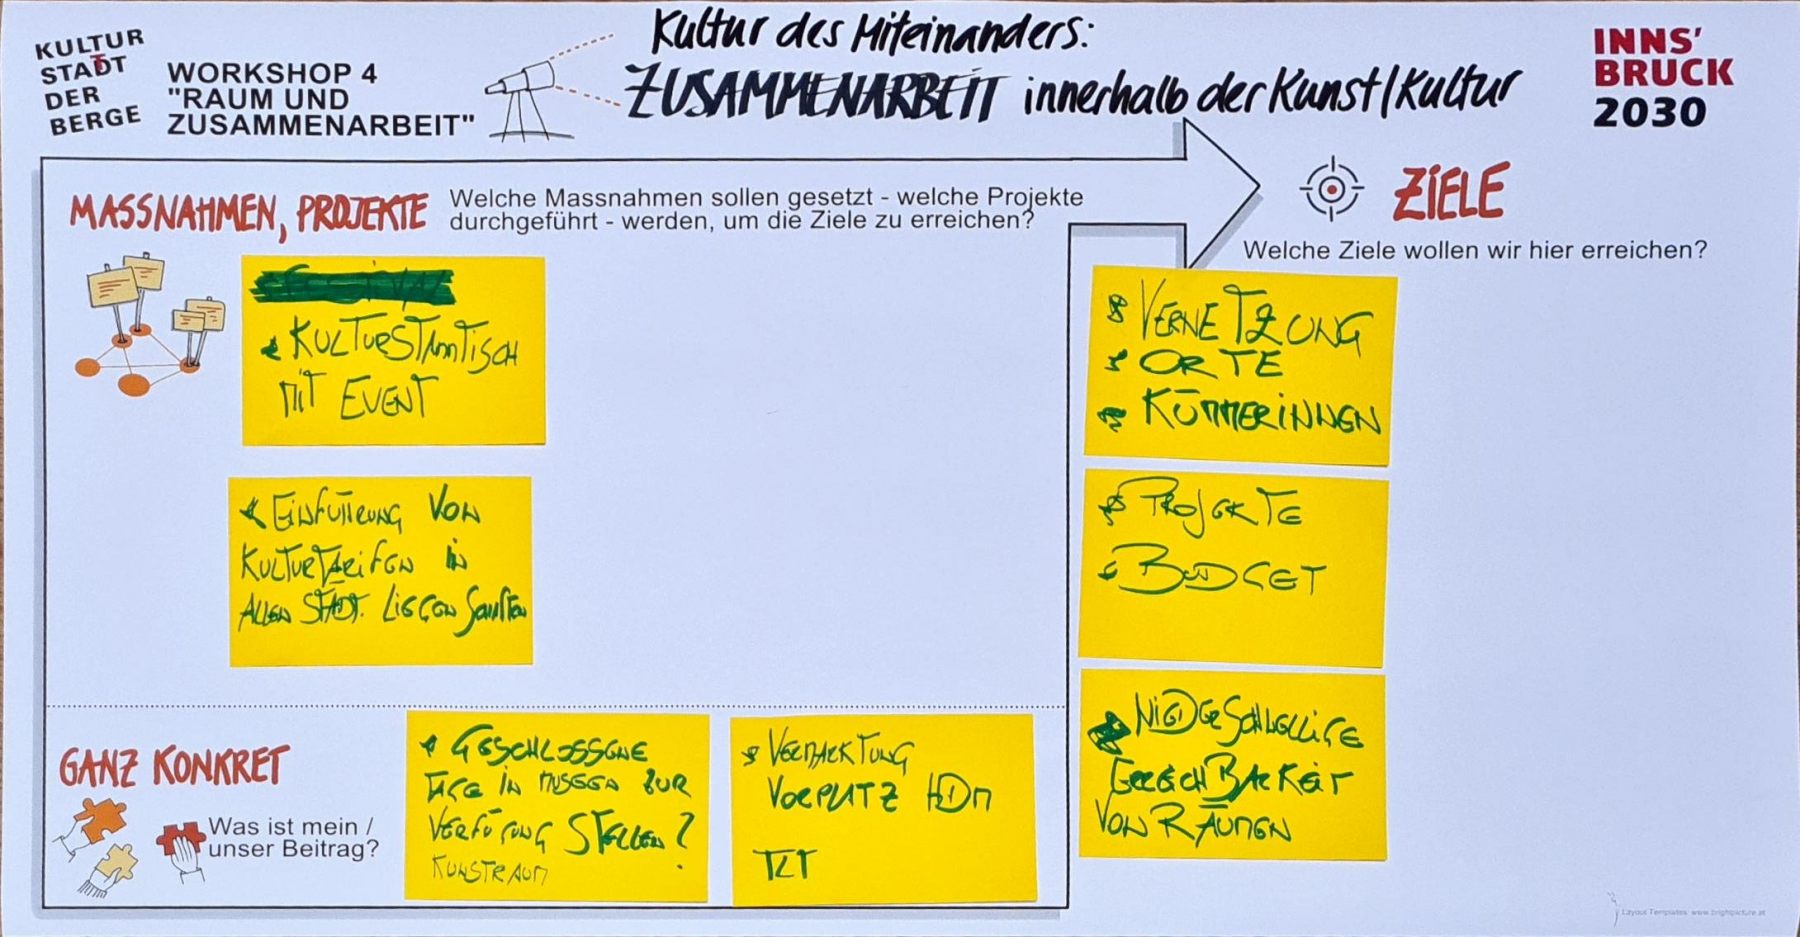 KULTUR
STADT
DER
BERGE
WORKSHOP 4
"RAUM UND
ZUSAMMENARBEIT"
Kultur des Miteinanders:
ZUSAMMENARBEIT innerhalb der Kunst/Kultur
INNS'
BRUCK
2030
MASSNAHMEN, PROJEKTE
Welche Massnahmen sollen gesetzt - welche Projekte
durchgeführt - werden, um die Ziele zu erreichen?
KULTURSTAMMTISCH
MIT EVENT
EINFÜHRUNG VON
KULTURTARIFEN IN
ALLEN STÄDT.
ZIELE
Welche Ziele wollen wir hier erreichen?
VERNETZUNG
ORTE
KÜMMERINNEN
PROJEKTE
BUDGET
NIEDERSCHWELLIGE
ERREICHBARKEIT
VON RÄUMEN
GANZ KONKRET
Was ist mein /
unser Beitrag?
GESCHLOSSENE
TAGE IN MUSEEN ZUR
VERFÜGUNG STELLEN?
KUNSTRAUM
VERMARKTUNG
VORPLATZ HDM
TLT
Layout Templates www.brightpicture.at